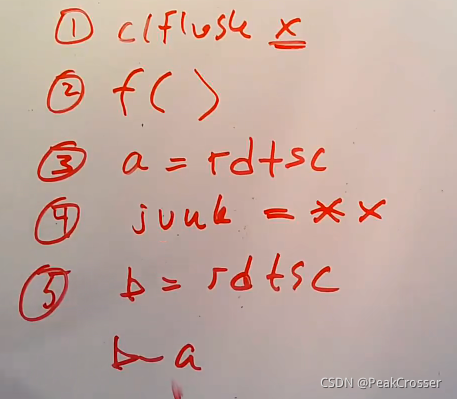 ① clflush x
② f()
③ a = rdtsc
④ junk = *x
⑤ b = rdtsc
b-a
CSDN @PeakCrosser